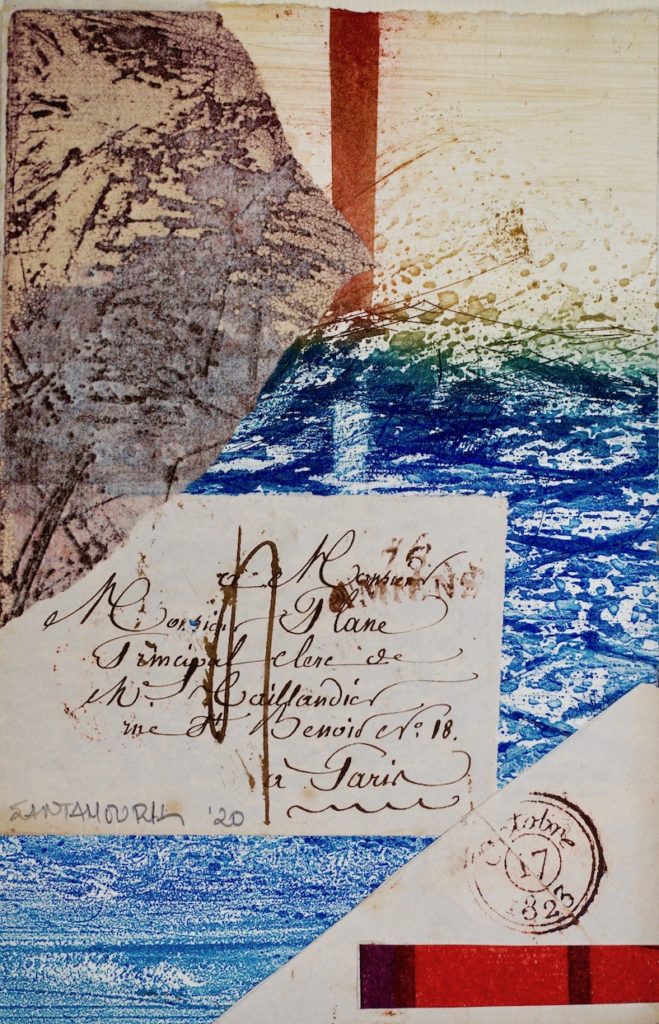 76
AMIENS
a Monsieur
Monsieur Plane
Principal clerc de
Mr. Taillandier
rue St Benoit No. 18.
à Paris
SANTAMOURIS '20
Octobre
17
1823